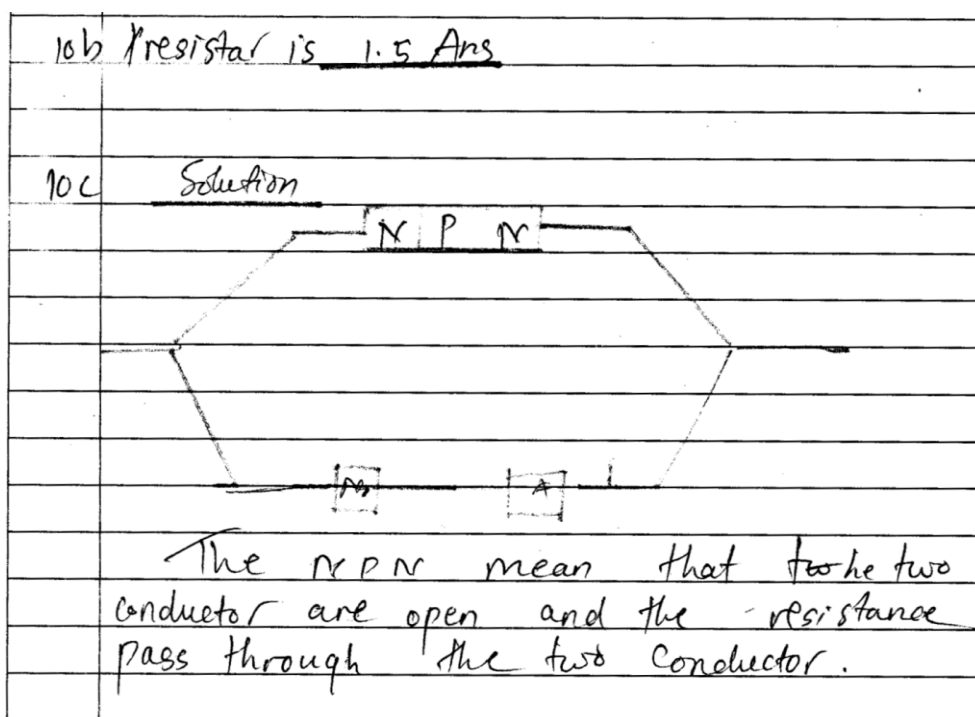 10b resistar is 1.5 Ans
10c Solution
N P N
A
The NPN mean that the two
conductor are open and the resistance
pass through the two conductor.